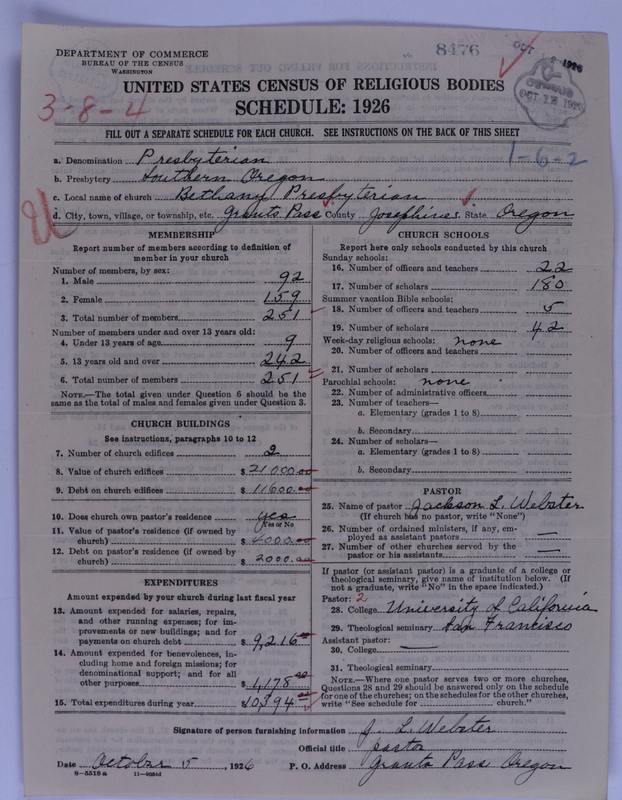 DEPARTMENT OF COMMERCE
BUREAU OF THE CENSUS
WASHINGTON
8476
OCT 1926
CENSUS
OCT 13 1926
UNITED STATES CENSUS OF RELIGIOUS BODIES
SCHEDULE: 1926
3-8-4
FILL OUT A SEPARATE SCHEDULE FOR EACH CHURCH. SEE INSTRUCTIONS ON THE BACK OF THIS SHEET
1-6-2
a. Denomination Presbyterian
b. Presbytery Southern Oregon
c. Local name of church Bethany Presbyterian
d. City, town, village, or township, etc. Grants Pass County Josephine State Oregon
MEMBERSHIP
Report number of members according to definition of
member in your church
Number of members, by sex:
1. Male 92
2. Female 159
3. Total number of members 251
Number of members under and over 13 years old:
4. Under 13 years of age 9
5. 13 years old and over 242
6. Total number of members 251
NOTE.—The total given under Question 6 should be
same as the total of males and females given under Question 3.
CHURCH BUILDINGS
See instructions, paragraphs 10 to 12
7. Number of church edifices 2
8. Value of church edifices $ 21000.00
9. Debt on church edifices $ 11600.00
10. Does church own pastor's residence yes
Yes or No
11. Value of pastor's residence (if owned by
church) $ 4000.00
12. Debt on pastor's residence (if owned by
church) $ 2000.00
EXPENDITURES
Amount expended by your church during last fiscal year
13. Amount expended for salaries, repairs,
and other running expenses; for im-
provements or new buildings; and for
payments on church debt $ 9,216.00
14. Amount expended for benevolences, in-
cluding home and foreign missions; for
denominational support; and for all
other purposes $ 1,178.00
15. Total expenditures during year $ 10,394.00
CHURCH SCHOOLS
Report here only schools conducted by this church
Sunday schools:
16. Number of officers and teachers 22
17. Number of scholars 180
Summer vacation Bible schools:
18. Number of officers and teachers 5
19. Number of scholars 42
Week-day religious schools: none
20. Number of officers and teachers
21. Number of scholars
Parochial schools: none
22. Number of administrative officers
23. Number of teachers—
a. Elementary (grades 1 to 8)
b. Secondary
24. Number of scholars—
a. Elementary (grades 1 to 8)
b. Secondary
PASTOR
25. Name of pastor Jackson L. Webster
(If church has no pastor, write "None")
26. Number of ordained ministers, if any, em-
ployed as assistant pastors —
27. Number of other churches served by the
pastor or his assistants —
If pastor (or assistant pastor) is a graduate of a college or
theological seminary, give name of institution below. (If
not a graduate, write "No" in the space indicated.)
Pastor: 2
28. College University of California
29. Theological seminary San Francisco
Assistant pastor:
30. College —
31. Theological seminary
NOTE.—Where one pastor serves two or more churches,
Questions 28 and 29 should be answered only on the schedule
for one of the churches; on the schedules for the other churches,
write "See schedule for church."
Signature of person furnishing information J. L. Webster
Official title pastor
Date October 5, 1926 P. O. Address Grants Pass Oregon
8-5518 a